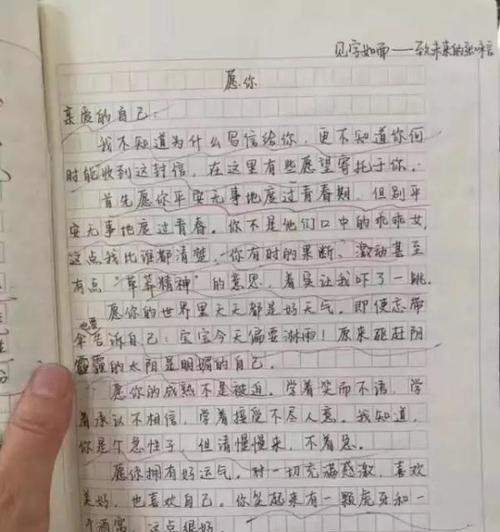 见字如面——致未来的张
愿你
亲爱的自己:
我不知道为什么写信给你,更不知道你何
时能收到这封信,在这里有些愿望寄托于你。
首先愿你平安无事地度过青春期,但别平
安无事地度过青春。你不是他们口中的乖乖女,
这点我比谁都清楚,你有时的果断、激动甚至
有点“草莽精神”的意思,着实让我吓了一跳。
愿你的世界里天天都是好天气。即使忘带
伞也要告诉自己:宝宝今天偏要淋雨!原来驱赶阴
霾的太阳是明媚的自己。
愿你的成熟不是被迫。学着笑而不语,学
着承认不相信,学着接受不尽人意。我知道,
你是个急性子,但请慢慢来,不着急。
愿你拥有好运气。对一切充满感激,喜欢
美好,也喜欢自己。你笑起来有一颗虎牙和一
个酒窝,这点很好。